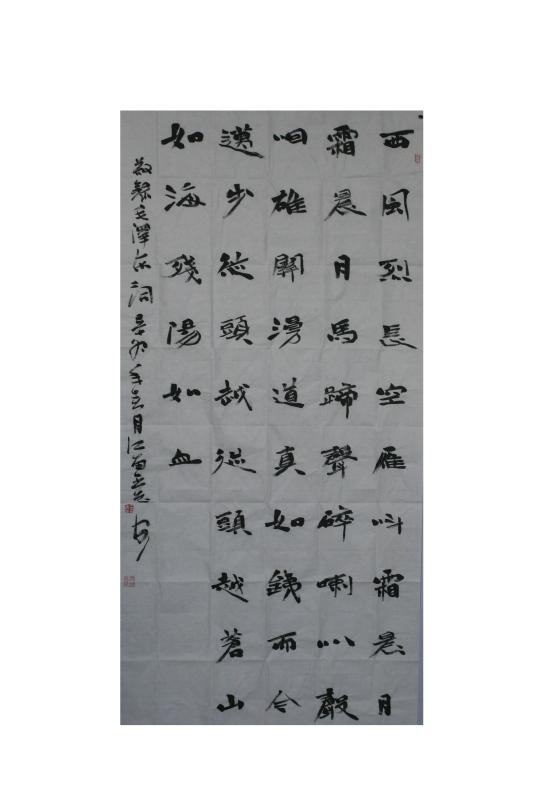 西風烈長空雁叫霜晨月
霜晨月馬蹄聲碎喇叭聲
咽雄關漫道真如鐵而今
邁步從頭越從頭越蒼山
如海殘陽如血
敬錄毛澤東詞辛卯年